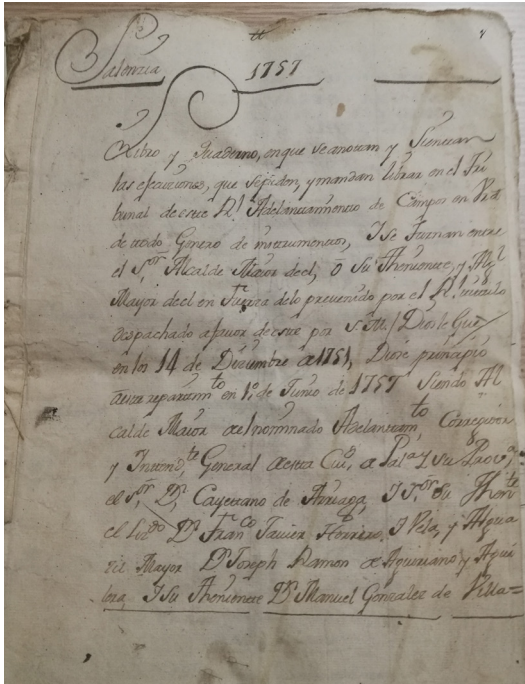 Palenzia 1757
Libro y Quaderno, en que se anotan y Sientan
las ejecuciones, que se piden, y mandan librar en el Tri
bunal de este Rl Adelantamiento de Campos en
de todo Genero de instrumentos, Y se Turnan entre
el Sor Alcalde Maior de el, ò Su Theniente, y Algl
Mayor de el en fuerza de lo prevenido por el Rl titulo
despachado a favor de este por S. M. / Dios le Gue /
en los 14 de Diziembre de 1751, Diose prinzipio
a este repartimto en 1º de Junio de 1757 Siendo Al
calde Maior del nominado Adelantamto Corregidor
y Yntendte General de esta Ciud de Pala Y su Prova
el Sor Dn Cayetano de Arriaga, Y Por Su Thente
el Lizdo Dn Franco Xavier Herrero, Y Vela, y Algua
zil Mayor Dn Joseph Ramon de Aguiriano y Agui
lera Y Su Theniente Dn Manuel Gonzalez de Villa=